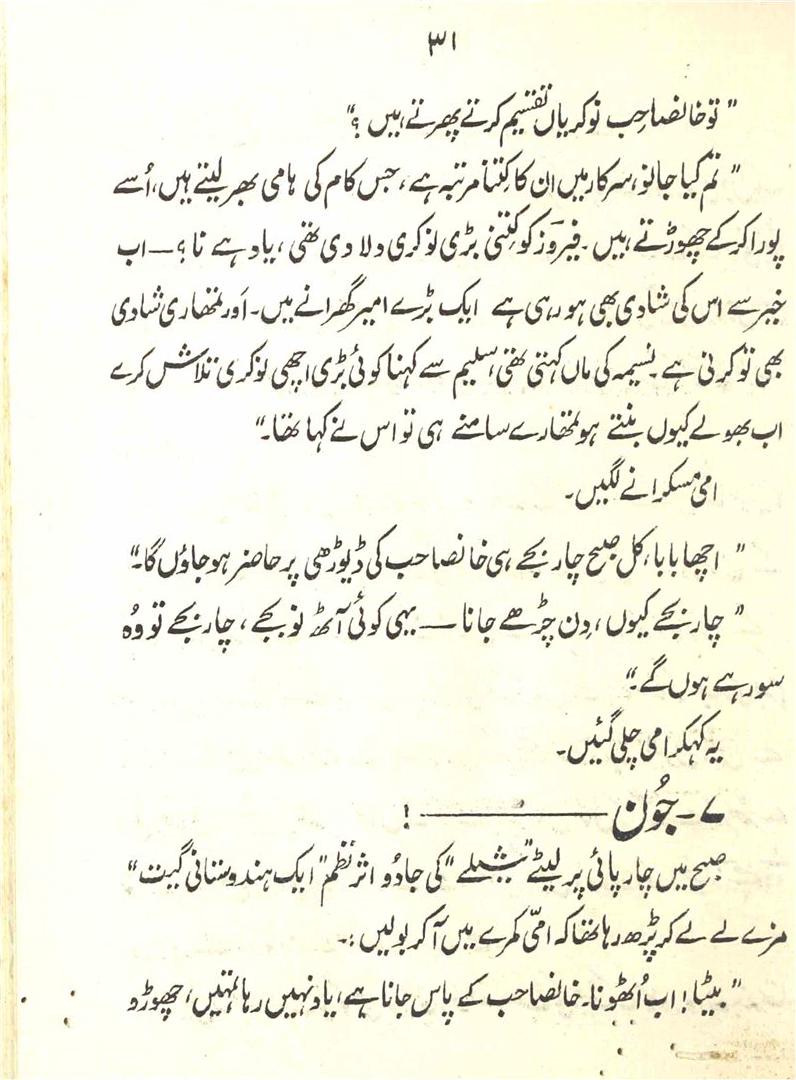 ۳۱
"تو خانصاحب نوکریاں تقسیم کرتے پھرتے ہیں ؟"
"تم کیا جانو، سرکار میں ان کا کِتنا مرتبہ ہے، جس کام کی ہامی بھر لیتے ہیں، اُسے
پورا کر کے چھوڑتے ہیں۔ فیروز کو کِتنی بڑی نوکری دلا دی تھی، یاد ہے نا؟ — اب
خیر سے اس کی شادی بھی ہو رہی ہے ایک بڑے امیر گھرانے میں۔ اَور تمھاری شادی
بھی تو کرنی ہے۔ نسیمہ کی ماں کہتی تھی، سلیم سے کہنا کوئی بڑی اچھی نوکری تلاش کرے
اب بھولے کیوں بنتے ہو تمھارے سامنے ہی تو اس نے کہا تھا۔"
امی مسکرانے لگیں۔
"اچھا بابا، کل صبح چار بجے ہی خانصاحب کی ڈیوڑھی پر حاضر ہو جاؤں گا۔"
"چار بجے کیوں، دِن چڑھے جانا — یہی کوئی آٹھ نو بجے، چار بجے تو وُہ
سو رہے ہوں گے۔"
یہ کہکر امی چلی گئیں۔
۷۔ جُون ————— !
صبح میں چارپائی پر لیٹے "شیلے" کی جادُو اثر نظم "ایک ہندوستانی گیت"
مزے لے لے کر پڑھ رہا تھا کہ امیّ کمرے میں آ کر بولیں :۔
"بیٹا! اب اُٹھو نا۔ خانصاحب کے پاس جانا ہے، یاد نہیں رہا تمہیں، چھوڑو